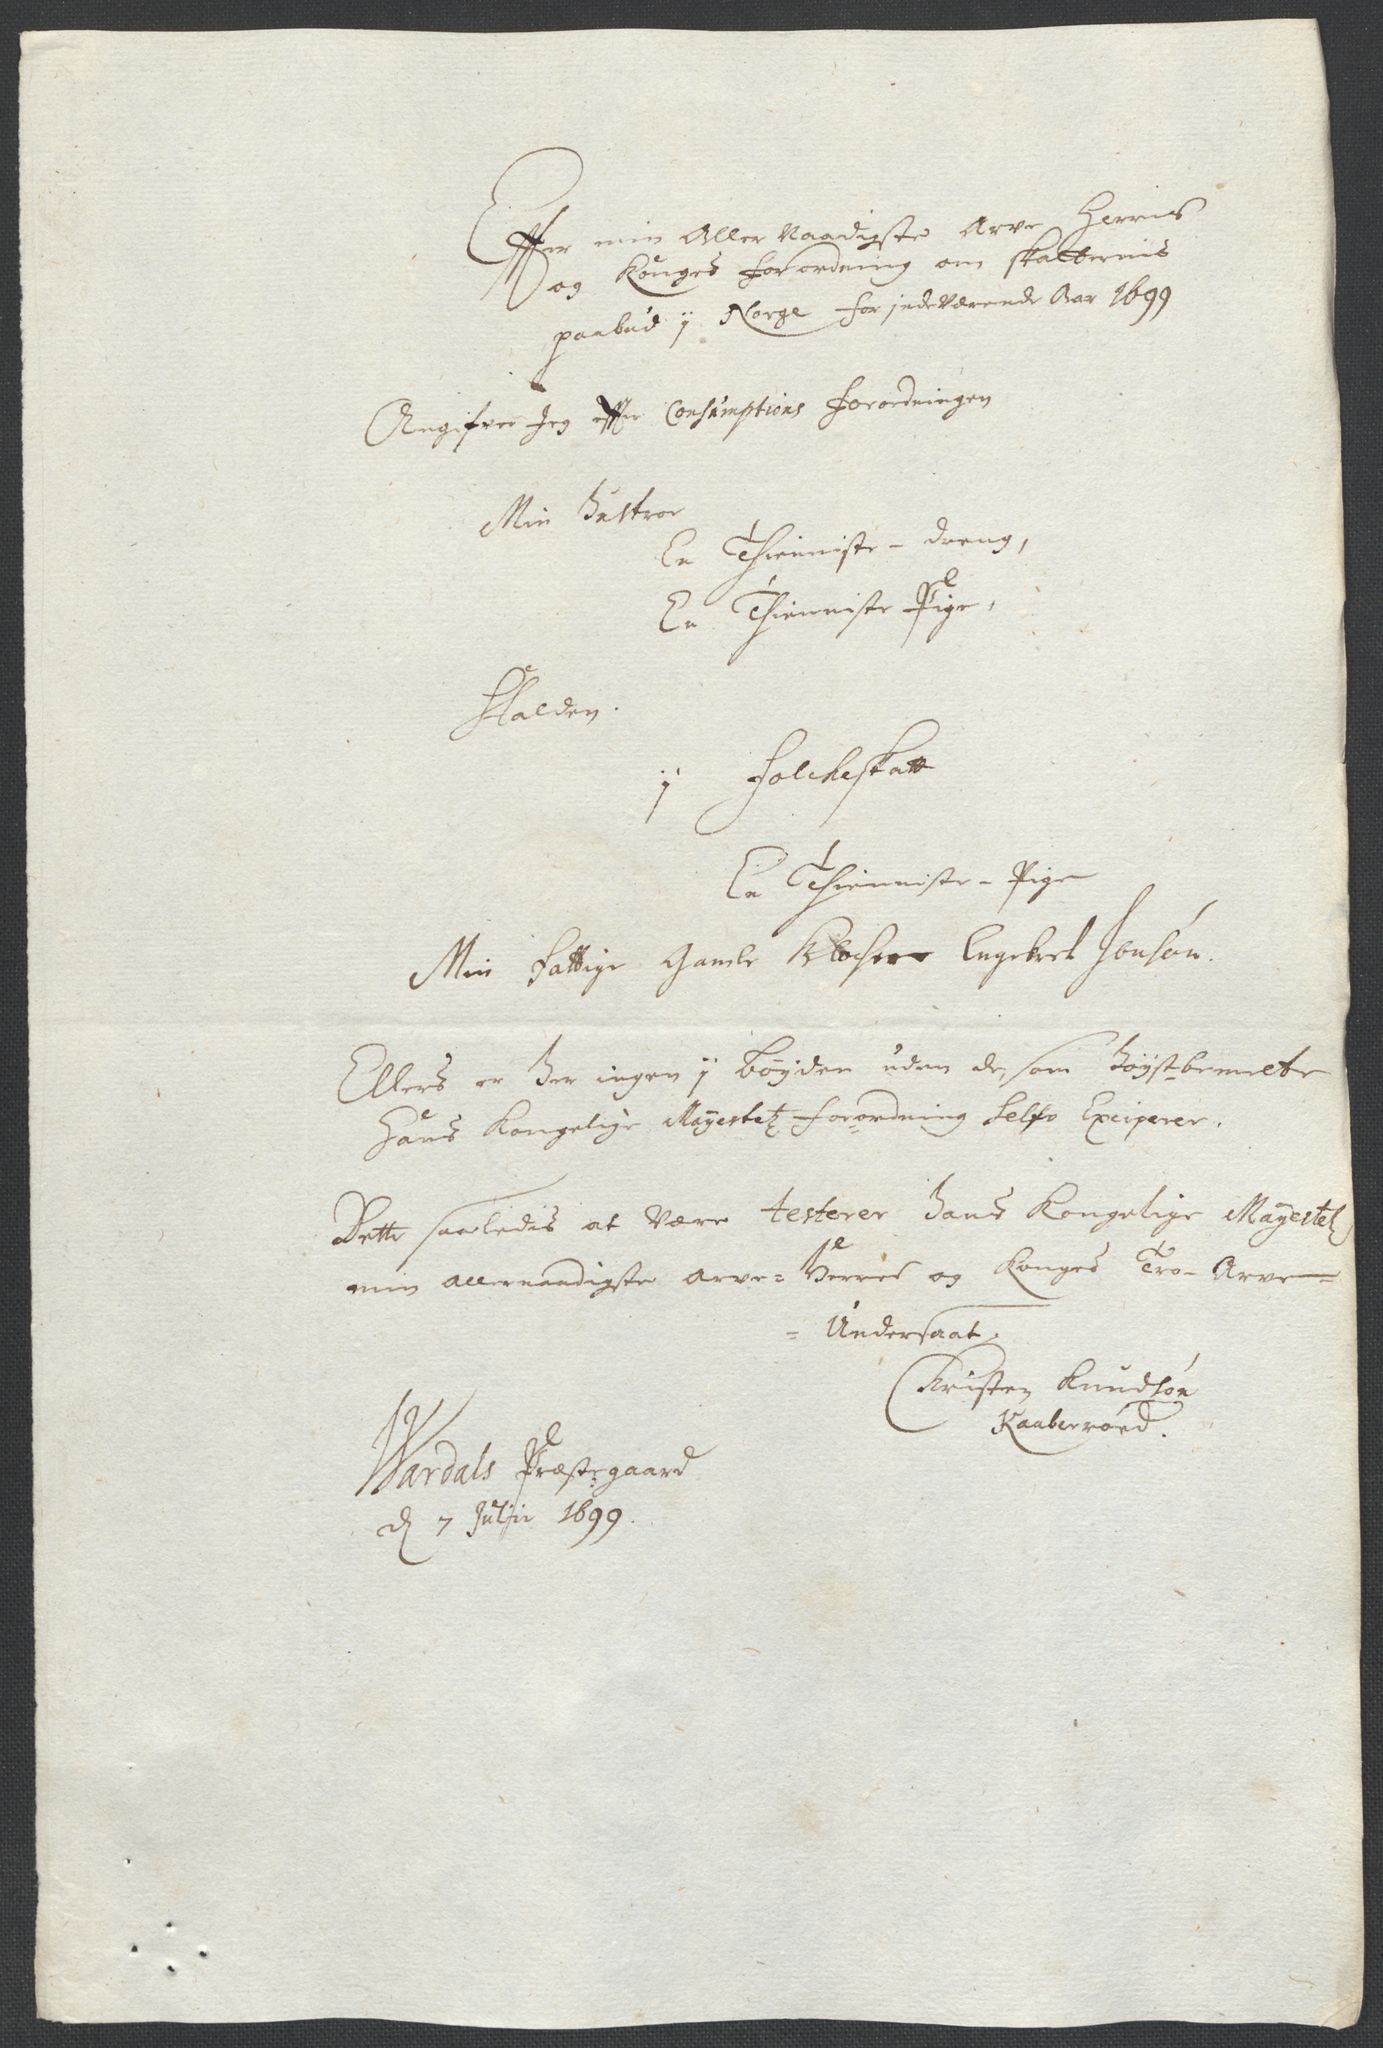 Effter min Aller Naadigste Arve Herris
og Konges forordning om skatternis
paabud ÿ Norge for indeværende Aar 1699
Angifver Jeg effter Consumptions forordningen
Min Hustroe
En Thienniste-dreng,
En Thienniste Pige,
Halden.
ÿ folcheskatt
En Thienniste-Pige
Min fattige Gamle Klocher Engebret Jonsøn.
Ellers er her ingen ÿ bøyden uden de, som høystbemelte
Hans Kongelige Mayestetz forordning selfv Exciperer.
Dette saaledis at være testerer hans Kongelige Mayestetz
min allernaadigste arve= Herres og Konges Tro- Arve=
= Undersaat,
Christen Knudsøn
Kaaberroed.
Wardals Præstegaard
d 7 Julii 1699.